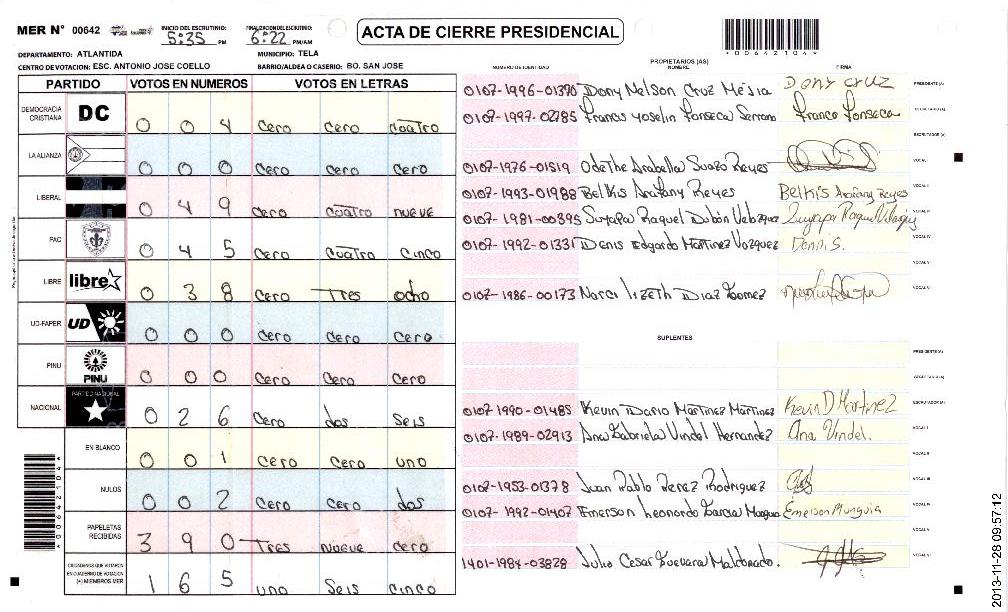 MER Nº 00642
INICIO DEL ESCRUTINIO: 5:35 PM
FINALIZACION DEL ESCRUTINIO: 6:22 PM/AM
ACTA DE CIERRE PRESIDENCIAL
*00642104*
DEPARTAMENTO: ATLANTIDA MUNICIPIO: TELA
CENTRO DE VOTACION: ESC. ANTONIO JOSE COELLO BARRIO/ALDEA O CASERIO: BO. SAN JOSE
PARTIDO VOTOS EN NUMEROS VOTOS EN LETRAS
DEMOCRACIA CRISTIANA DC 0 0 4 cero cero cuatro
LA ALIANZA 0 0 0 cero cero cero
LIBERAL 0 4 9 cero cuatro nueve
PAC 0 4 5 cero cuatro cinco
LIBRE libre 0 3 8 cero Tres ocho
UD-FAPER UD 0 0 0 cero cero cero
PINU PINU 0 0 0 cero cero cero
NACIONAL PARTIDO NACIONAL 0 2 6 cero dos seis
EN BLANCO 0 0 1 cero cero uno
NULOS 0 0 2 cero cero dos
PAPELETAS RECIBIDAS 3 9 0 Tres nueve cero
CIUDADANOS QUE VOTARON EN CUADERNO DE VOTACION (+) MIEMBROS MER 1 6 5 uno seis cinco
*00642104*
PROPIETARIOS (AS)
NUMERO DE IDENTIDAD NOMBRE FIRMA
0107-1996-01390 Dony Nelson Cruz Mejia Dony Cruz PRESIDENTE (A)
0107-1997-02785 Francis Yoselin Fonseca Serrano Franco Fonseca SECRETARIO (A)
ESCRUTADOR (A)
0107-1976-01519 Odethe Arabella Suazo Reyes VOCAL I
0107-1993-01988 Belkis Arafany Reyes Belkis Arafany Reyes VOCAL II
0107-1981-00395 Suyapa Raquel Dubón Velazquez VOCAL III
0107-1992-01331 Denis Edgardo Martinez Vazquez Dennis. VOCAL IV
VOCAL V
0107-1986-00173 Norci lizeth Diaz Gomez VOCAL VI
SUPLENTES
PRESIDENTE (A)
SECRETARIO (A)
0107-1990-01485 Kevin Dario Martinez Martinez Kevin D Martinez ESCRUTADOR (A)
0107-1989-02913 Ana Gabriela Vindel Hernandez Ana Vindel. VOCAL I
VOCAL II
0107-1953-01378 Juan Pablo Perez Rodriguez VOCAL III
0107-1992-01407 Emerson Leonardo Garcia Emerson Munguia VOCAL IV
VOCAL V
1401-1984-03828 Julio Cesar Guevara Maldonado. VOCAL VI
2013-11-28 09:57:12